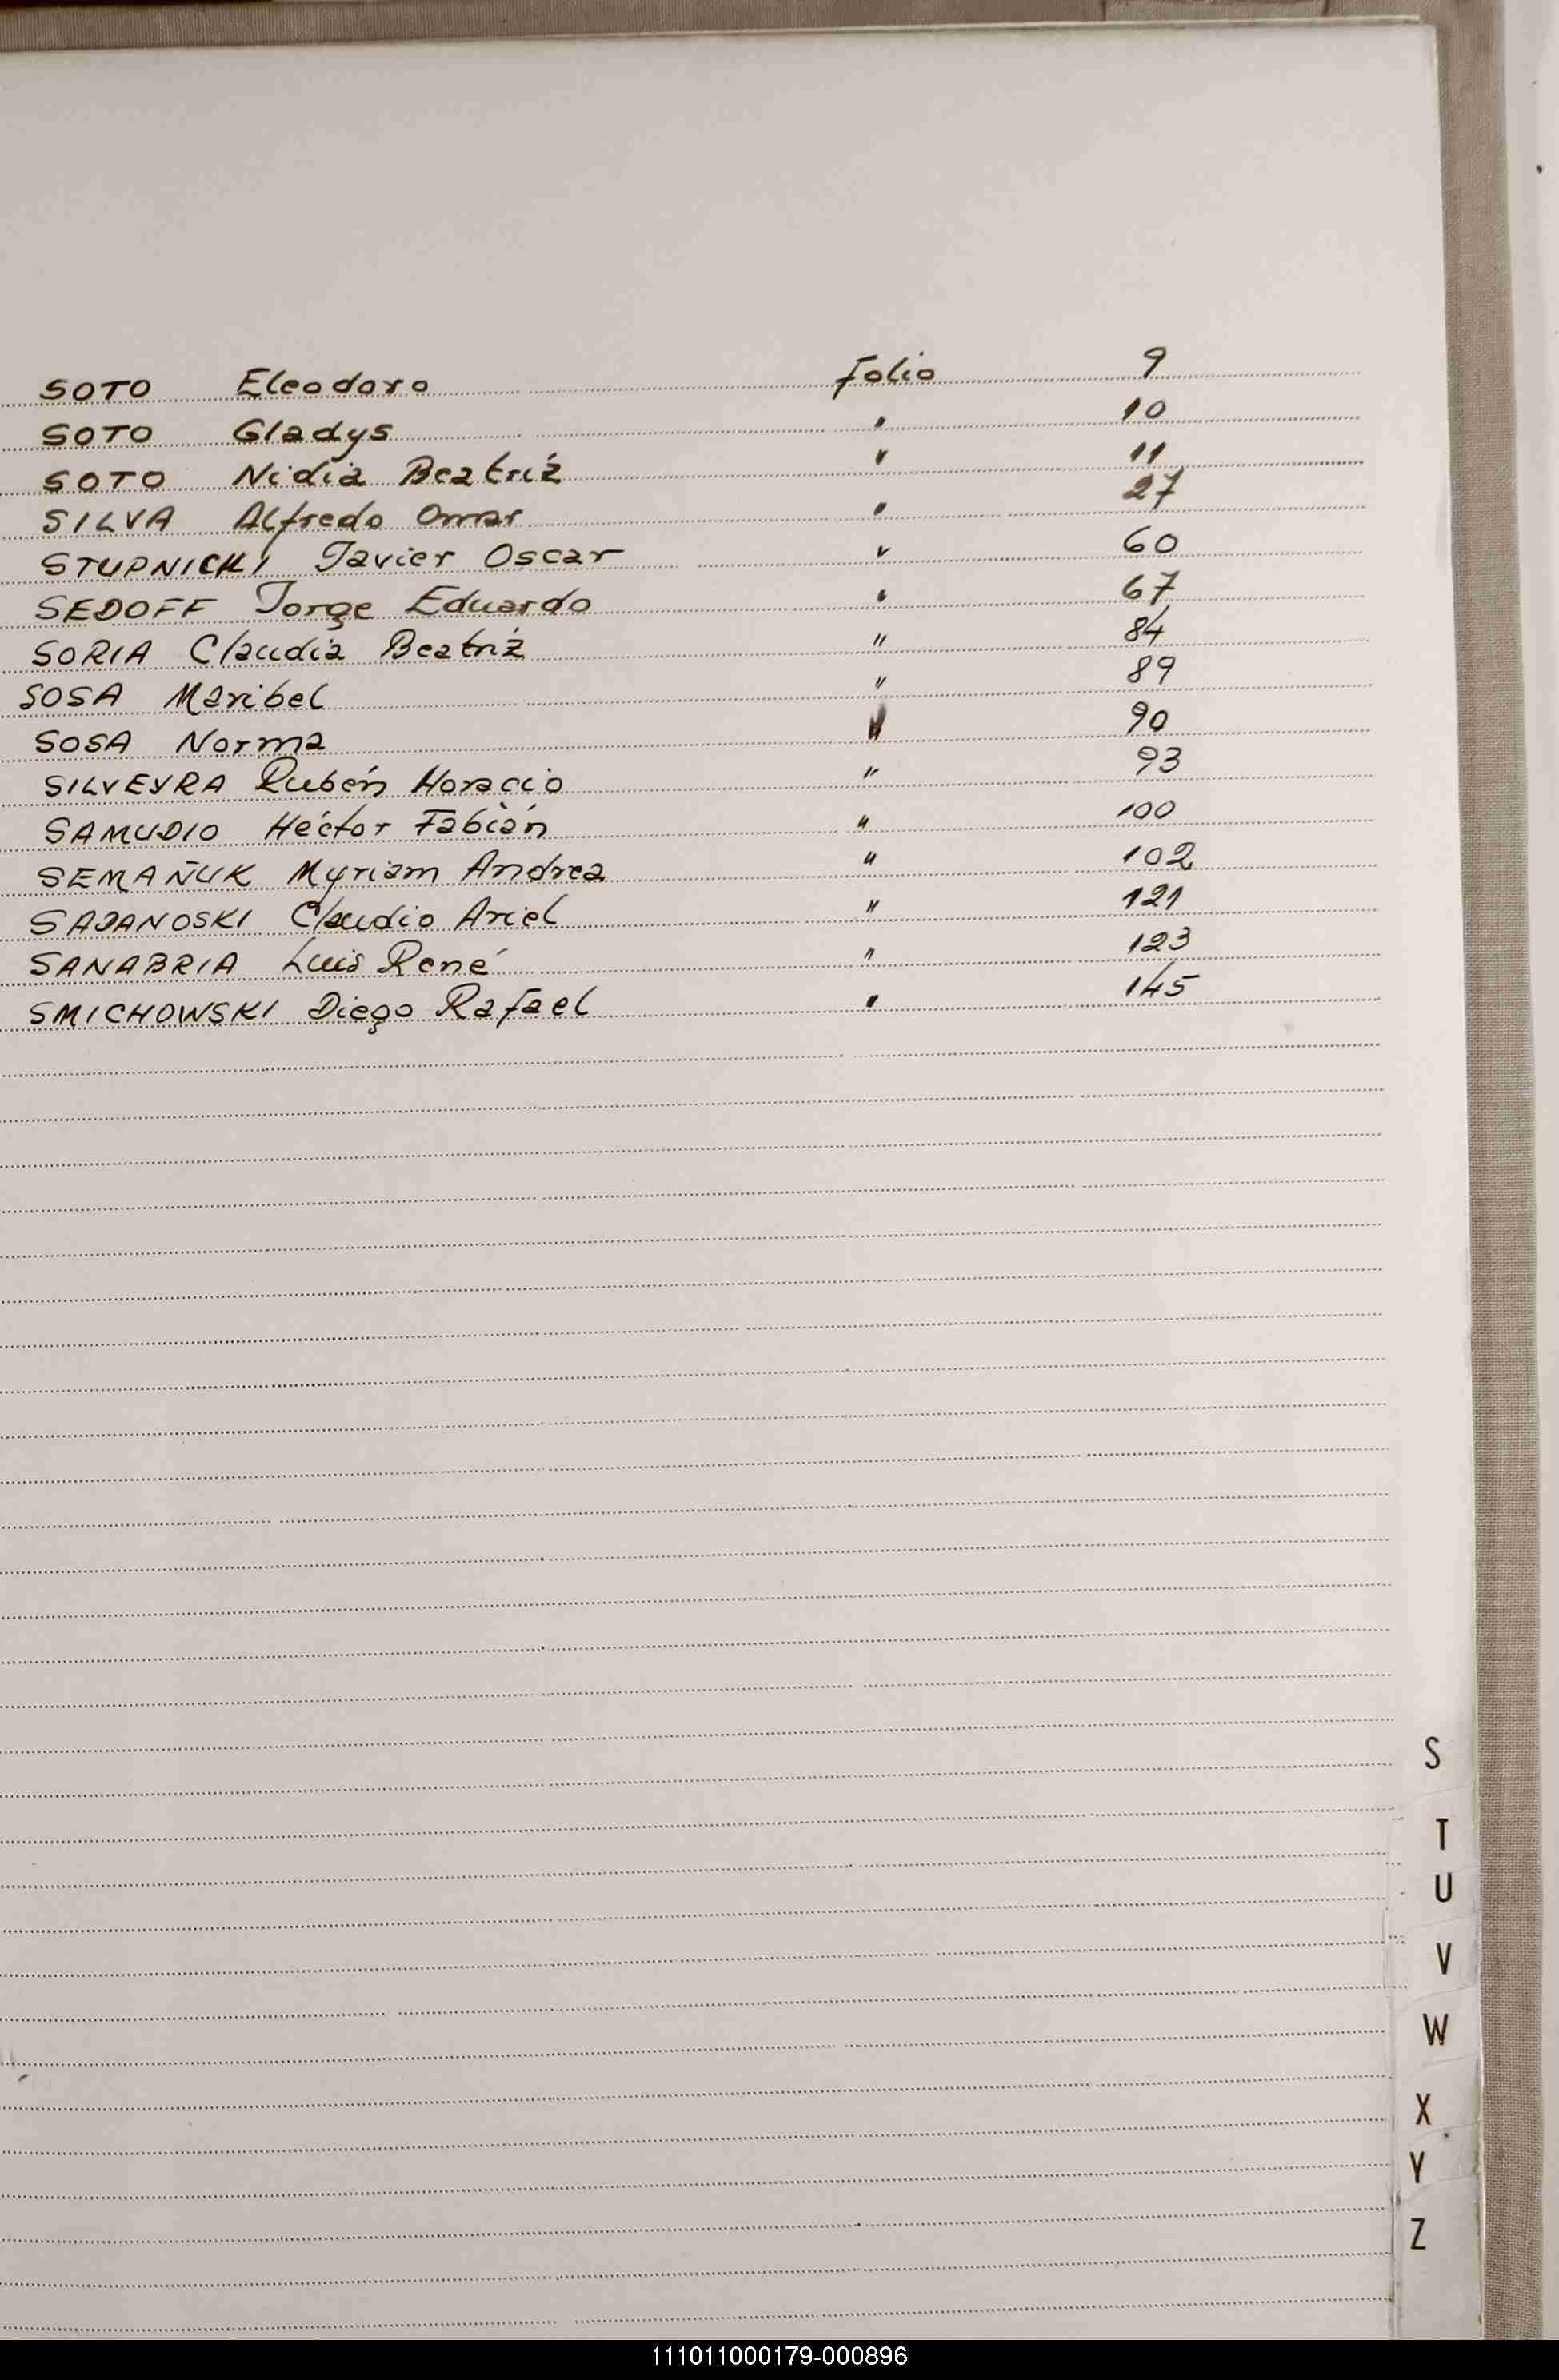 SOTO Eleodoro Folio 9
SOTO Gladys " 10
SOTO Nidia Beatríz " 11
SILVA Alfredo Omar " 27
STUPNICKI Javier Oscar " 60
SEDOFF Jorge Eduardo " 67
SORIA Claudia Beatríz " 84
SOSA Maribel " 89
SOSA Norma " 90
SILVEYRA Rubén Horacio " 93
SAMUDIO Héctor Fabián " 100
SEMAÑUK Myriam Andrea " 102
SAJANOSKI Claudio Ariel " 121
SANABRIA Luis René " 123
SMICHOWSKI Diego Rafael " 145
S
T
U
V
W
X
Y
Z
111011000179-000896